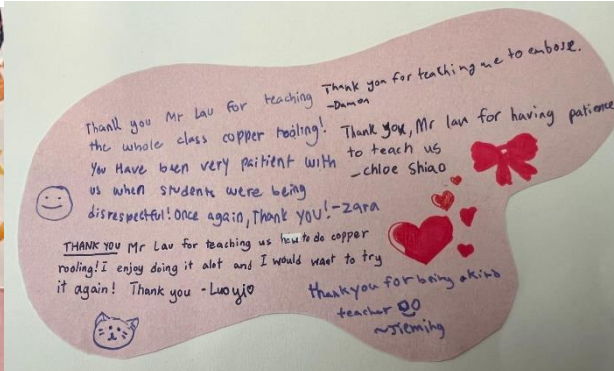 Thank you Mr Lau for teaching
the whole class copper tooling!
You Have been very paitient with
us when students were being
disrespectful! Once again, Thank you! -zara
Thank you for teaching me to embose.
-Damon
Thank you, Mr lau for having patience
to teach us
-chloe Shiao
THANK YOU Mr Lau for teaching us how to do copper
rooling! I enjoy doing it alot and I would want to try
it again! Thank you -Luo yi
thankyou for being a kind
teacher
~Jieming